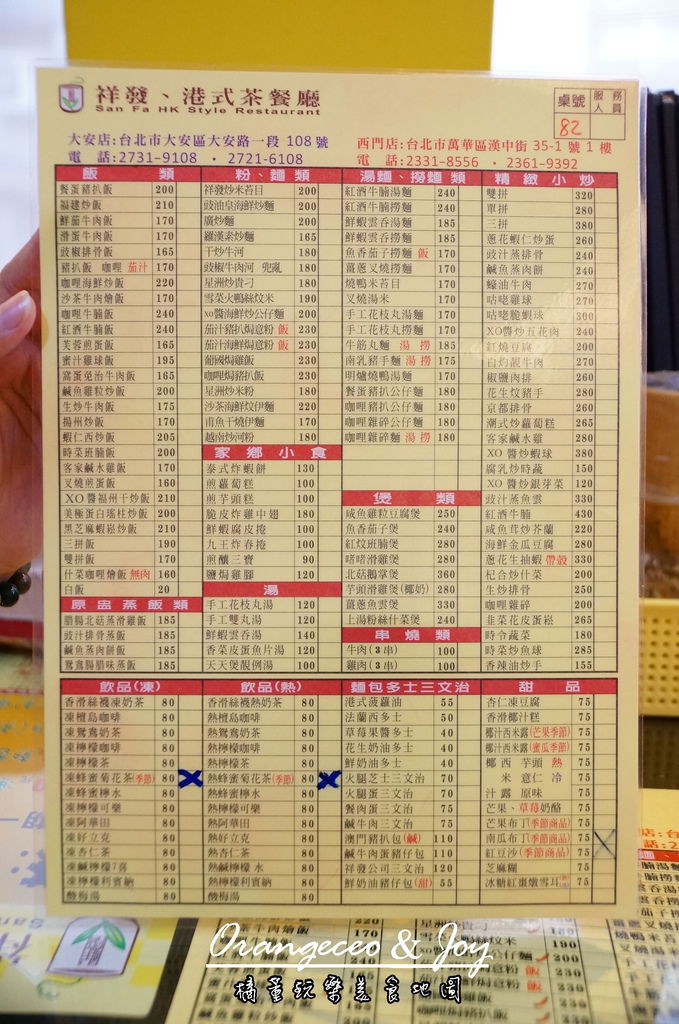 祥發、港式茶餐廳
San Fa HK Style Restaurant
桌號 服務人員
82
大安店:台北市大安區大安路一段 108 號
電 話:2731-9108 · 2721-6108
西門店:台北市萬華區漢中街 35-1 號 1 樓
電 話:2331-8556 · 2361-9392
飯 類
餐蛋豬扒飯 200
福建炒飯 210
鮮茄牛肉飯 170
滑蛋牛肉飯 170
豉椒排骨飯 165
豬扒飯 咖哩 茄汁 170
咖哩海鮮炒飯 220
沙茶牛肉燴飯 170
咖哩牛腩飯 240
紅酒牛腩飯 240
芙蓉煎蛋飯 165
蜜汁雞球飯 195
窩蛋免治牛肉飯 165
鹹魚雞粒炒飯 200
生炒牛肉飯 175
揚州炒飯 170
蝦仁西炒飯 205
時菜班腩飯 200
客家鹹水雞飯 170
叉燒煎蛋飯 160
XO醬福州干炒飯 210
美極蛋白瑤柱炒飯 200
黑芝麻蝦崧炒飯 210
三拼飯 190
雙拼飯 170
什菜咖哩燴飯 無肉 160
白飯 20
原盅蒸飯類
腊腸北菇蒸滑雞飯 185
豉汁排骨蒸飯 185
鹹魚蒸肉餅飯 185
鴛鴦腸腊味蒸飯 185
粉、麵類
祥發炒米苔目 200
豉油皇海鮮炒麵 200
廣炒麵 200
羅漢素炒麵 165
干炒牛河 180
豉椒牛肉河 兜亂 180
星洲炒貴刁 180
雪菜火鴨絲炆米 190
xo醬海鮮炒公仔麵 200
茄汁豬扒焗意粉 飯 230
茄汁海鮮焗意粉 飯 230
葡國焗雞飯 230
咖哩焗豬扒飯 230
星洲炒米粉 180
沙茶海鮮炆伊麵 220
甫魚干燒伊麵 170
越南炒河粉 180
家鄉小食
泰式炸蝦餅 130
煎蘿蔔糕 100
煎芋頭糕 100
脆皮炸雞中翅 180
鮮蝦腐皮捲 100
九王炸春捲 100
煎釀三寶 90
鹽焗雞腳 120
湯
手工花枝丸湯 120
手工雙丸湯 120
鮮蝦雲吞湯 140
香菜皮蛋魚片湯 120
天天煲靚例湯 100
湯麵、撈麵類
紅酒牛腩湯麵 240
紅酒牛腩撈麵 240
鮮蝦雲吞湯麵 185
鮮蝦雲吞撈麵 185
魚香茄子撈麵 飯 170
薑蔥叉燒撈麵 170
燒鴨米苔目 170
叉燒湯米 170
手工花枝丸湯麵 170
手工花枝丸撈麵 170
牛筋丸麵 湯 撈 185
南乳豬手麵 湯 撈 175
明爐燒鴨湯麵 170
餐蛋豬扒公仔麵 180
咖哩豬扒公仔麵 180
咖哩雜碎公仔麵 180
咖哩雜碎麵 湯 撈 180
煲 類
咸魚雞粒豆腐煲 250
魚香茄子煲 240
紅炆班腩煲 280
啫啫滑雞煲 280
北菇鵝掌煲 360
芋頭滑雞煲(椰奶) 280
薑蔥魚雲煲 330
上湯粉絲什菜煲 240
串燒類
牛肉(3串) 100
雞肉(3串) 100
精緻小炒
雙拼 320
單拼 280
三拼 380
蔥花蝦仁炒蛋 260
豉汁蒸排骨 240
鹹魚蒸肉餅 240
蠔油牛肉 270
咕咾雞球 270
咕咾脆蝦球 300
XO醬炒五花肉 240
紅燒豆腐 200
白灼靚牛肉 270
椒鹽肉排 260
花生炆豬手 280
京都排骨 260
潮式炒蘿蔔糕 265
客家鹹水雞 280
XO 醬炒蝦球 380
腐乳炒時蔬 150
XO 醬炒銀芽菜 120
豉汁蒸魚雲 330
紅酒牛腩 430
咸魚茸炒芥蘭 220
海鮮金瓜豆腐 280
蔥花生抽蝦 帶殼 330
杞合炒什菜 200
生炒排骨 250
咖哩雜碎 200
韭菜花皮蛋崧 265
時令蔬菜 180
時菜炒魚球 285
香辣油炒手 155
飲品(凍)
香滑絲襪凍奶茶 80
凍檀島咖啡 80
凍鴛鴦奶茶 80
凍檸檬咖啡 80
凍檸檬茶 80
凍蜂蜜菊花茶(季節) 80
凍蜂蜜檸水 80
凍檸檬可樂 80
凍阿華田 80
凍好立克 80
凍杏仁茶 80
凍鹹檸檬7喜 80
凍檸檬利賓納 80
酸梅湯 80
飲品(熱)
香滑絲襪熱奶茶 80
熱檀島咖啡 80
熱鴛鴦奶茶 80
熱檸檬咖啡 80
熱檸檬茶 80
熱蜂蜜菊花茶(季節) 80
熱蜂蜜檸水 80
熱檸檬可樂 80
熱阿華田 80
熱好立克 80
熱杏仁茶 80
熱鹹檸檬水 80
熱檸檬利賓納 80
酸梅湯 80
麵包多士三文治
港式菠蘿油 55
法蘭西多士 50
草莓果醬多士 40
花生奶油多士 40
鮮奶油多士 40
火腿芝士三文治 70
火腿蛋三文治 70
餐肉蛋三文治 75
鹹牛肉三文治 75
澳門豬扒包(鹹) 110
鹹牛肉蛋豬仔包 110
祥發公司三文治 120
鮮奶油豬仔包(甜) 55
甜 品
杏仁凍豆腐 75
香滑椰汁糕 75
椰汁西米露(芒果季節) 75
椰汁西米露(蜜瓜季節) 75
椰 西 芋頭 熱 75
米 意仁 冷 75
汁 露 原味 75
芒果、草莓奶酪 75
芒果布丁(季節商品) 75
南瓜布丁(季節商品) 75
紅豆沙(季節商品) 75
芝麻糊 75
冰糖紅棗燉雪耳 75
Orangeceo & Joy
橘董玩樂美食地圖